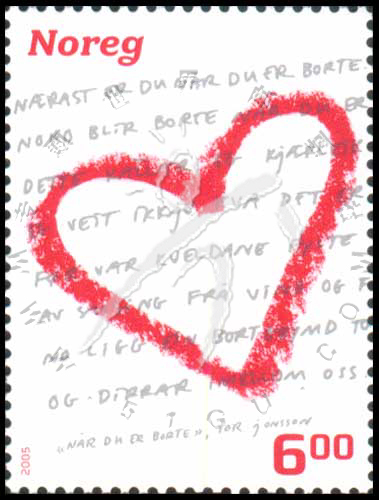 Noreg
NÆRAST ER DU NÅR DU ER BORTE
NOKO BLIR BORTE NÅR DU ER
DETTE KJÆRLEIK
VEIT IKKJE KVA DET ER
FØR VAR KVELDANE
AV FRÅ VIND OG F
NO LIGG EIN BORTGØYMD TO
OG DIRRAR IMELLOM OSS
«NÅR DU ER BORTE», TOR JONSSON
2005
6.00